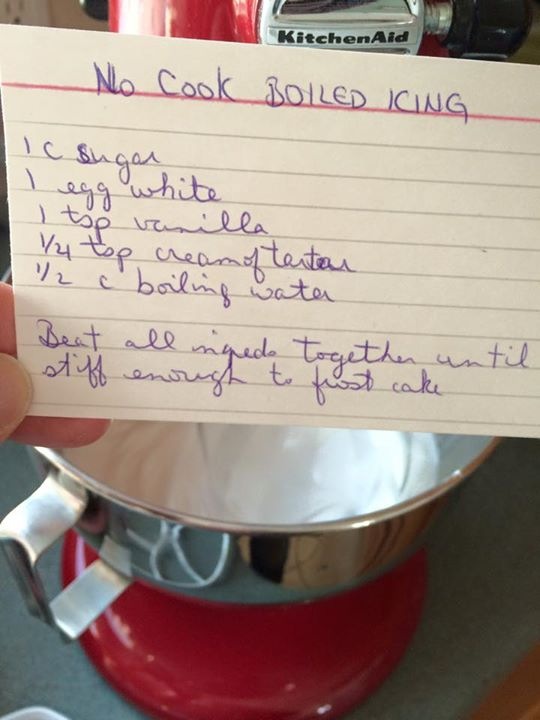 KitchenAid
No Cook BOILED ICING
1 c sugar
1 egg white
1 tsp vanilla
1/4 tsp cream of tartar
1/2 c boiling water
Beat all ingreds together until
stiff enough to frost cake